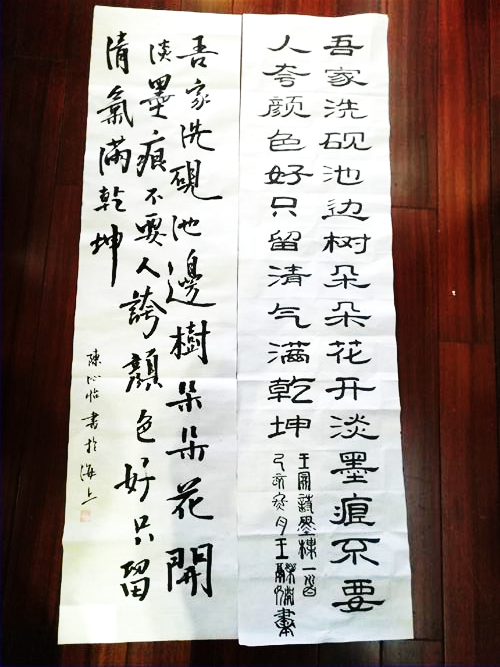 吾家洗砚池边树朵朵花开淡墨痕不要
人夸颜色好只留清气满乾坤
王冕詩墨楳一首
己亥月王書
吾家洗硯池邊樹朵朵花開
淡墨痕不要人誇顏色好只留
清氣滿乾坤
陳心怡書於海上